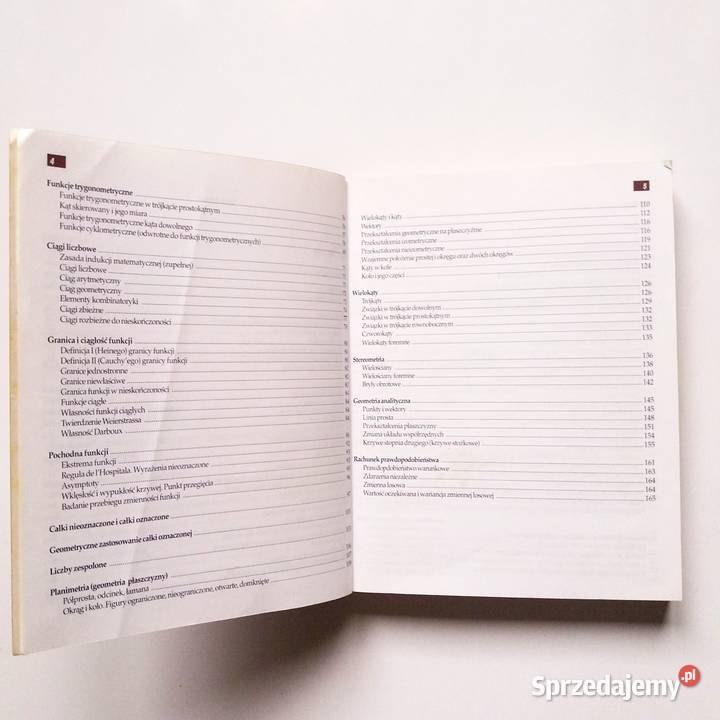 4
Funkcje trygonometryczne
Funkcje trygonometryczne w trójkącie prostokątnym
Kąt skierowany i jego miara
Funkcje trygonometryczne kąta dowolnego
Funkcje cyklometryczne (odwrotne do funkcji trygonometrycznych)
Ciągi liczbowe
Zasada indukcji matematycznej (zupełnej)
Ciągi liczbowe
Ciąg arytmetyczny
Ciąg geometryczny
Elementy kombinatoryki
Ciągi zbieżne
Ciągi rozbieżne do nieskończoności
Granica i ciągłość funkcji
Definicja I (Heinego) granicy funkcji
Definicja II (Cauchy'ego) granicy funkcji
Granice jednostronne
Granice niewłaściwe
Granica funkcji w nieskończoności
Funkcje ciągłe
Własności funkcji ciągłych
Twierdzenie Weierstrassa
Własność Darboux
Pochodna funkcji
Ekstrema funkcji
Reguła de l'Hospitala. Wyrażenia nieoznaczone
Asymptoty
Wklęsłość i wypukłość krzywej. Punkt przegięcia
Badanie przebiegu zmienności funkcji
Całki nieoznaczone i całki oznaczone
Geometryczne zastosowanie całki oznaczonej
Liczby zespolone
Planimetria (geometria płaszczyzny)
Półprosta, odcinek, łamana
Okrąg i koło. Figury ograniczone, nieograniczone, otwarte, domknięte
5
110
Wielokąty i kąty 112
Wektory 116
Przekształcenia geometryczne na płaszczyźnie 116
Przekształcenia izometryczne 119
Przekształcenia nieizometryczne 121
Wzajemne położenie prostej i okręgu oraz dwóch okręgów 123
Kąty w kole 124
Koło i jego części
Wielokąty 126
Trójkąty 126
Związki w trójkącie dowolnym 129
Związki w trójkącie prostokątnym 132
Związki w trójkącie równobocznym 132
Czworokąty 133
Wielokąty foremne 135
Stereometria 136
Wielościany 138
Wielościany foremne 140
Bryły obrotowe 142
Geometria analityczna 145
Punkty i wektory 145
Linia prosta 148
Przekształcenia płaszczyzny 151
Zmiana układu współrzędnych 154
Krzywe stopnia drugiego (krzywe stożkowe) 155
Rachunek prawdopodobieństwa 161
Prawdopodobieństwo warunkowe 163
Zdarzenia niezależne 164
Zmienna losowa 164
Wartość oczekiwana i wariancja zmiennej losowej 165
Sprzedajemy.pl